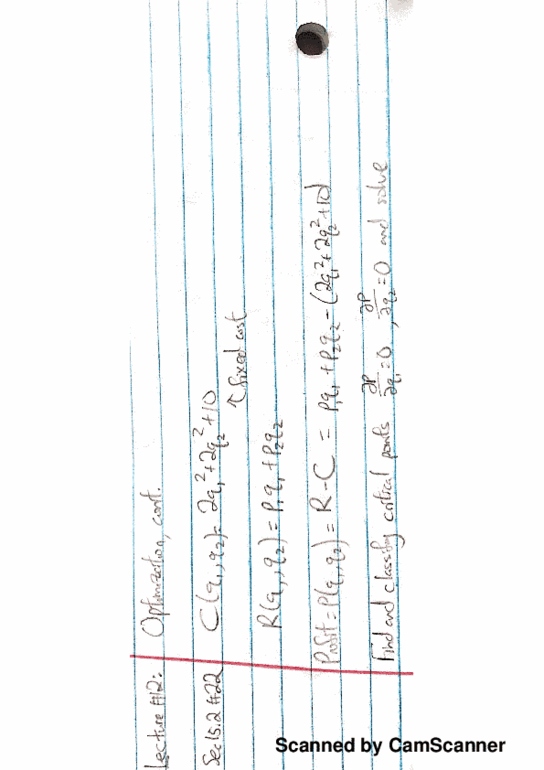 Lecture #12: Optimization, cont.
Sec 15.2 #22 C(q₁, q₂) = 2q₁² + 2q₂² + 10
↑ fixed cost
R(q₁, q₂) = P₁q₁ + P₂q₂
Profit = P(q₁, q₂) = R - C = P₁q₁ + P₂q₂ - (2q₁² + 2q₂² + 10)
Find and classify critical points ∂P/∂q₁ = 0, ∂P/∂q₂ = 0 and solve
Scanned by CamScanner